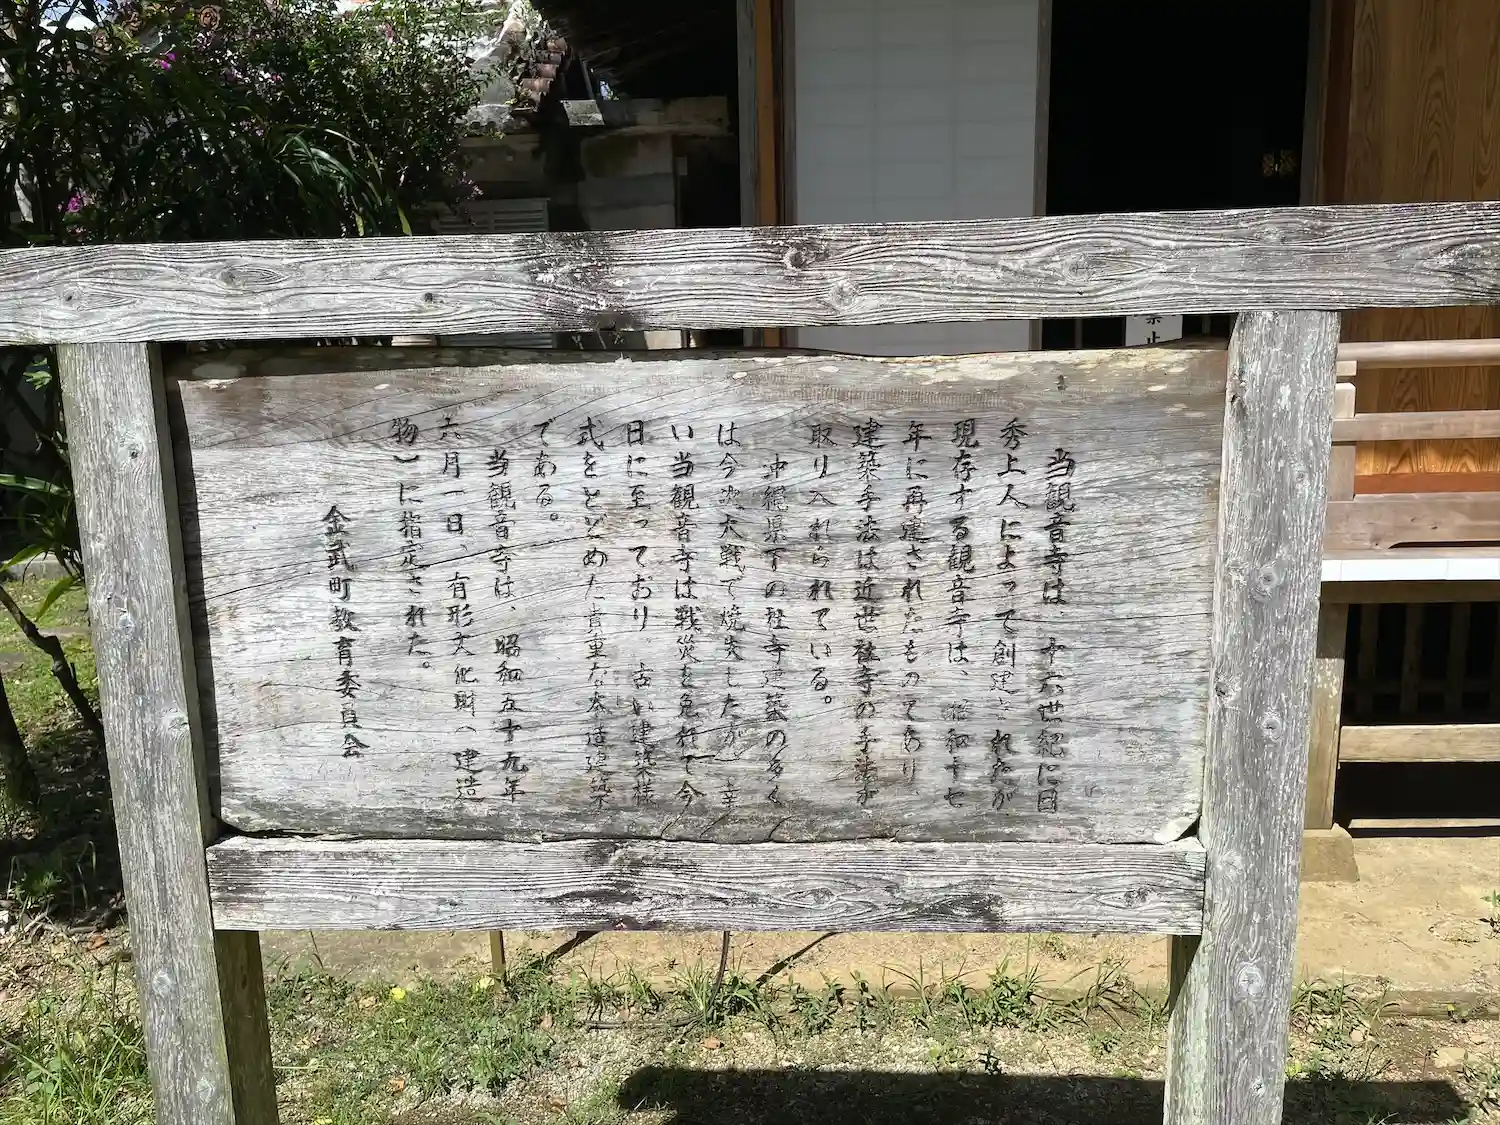 当観音寺は、十六世紀に日
秀上人によって創建されたが
現存する観音寺は、昭和十七
年に再建されたものであり
建築手法は近世社寺の手法が
取り入れられている。
沖縄県下の社寺建築の多く
は今次大戦で焼失したが、幸
い当観音寺は戦災を免れて今
日に至っており、古い建築様
式をとどめた貴重な木造建築
である。
当観音寺は、昭和五十九年
六月一日、有形文化財（建造
物）に指定された。
金武町教育委員会
禁止